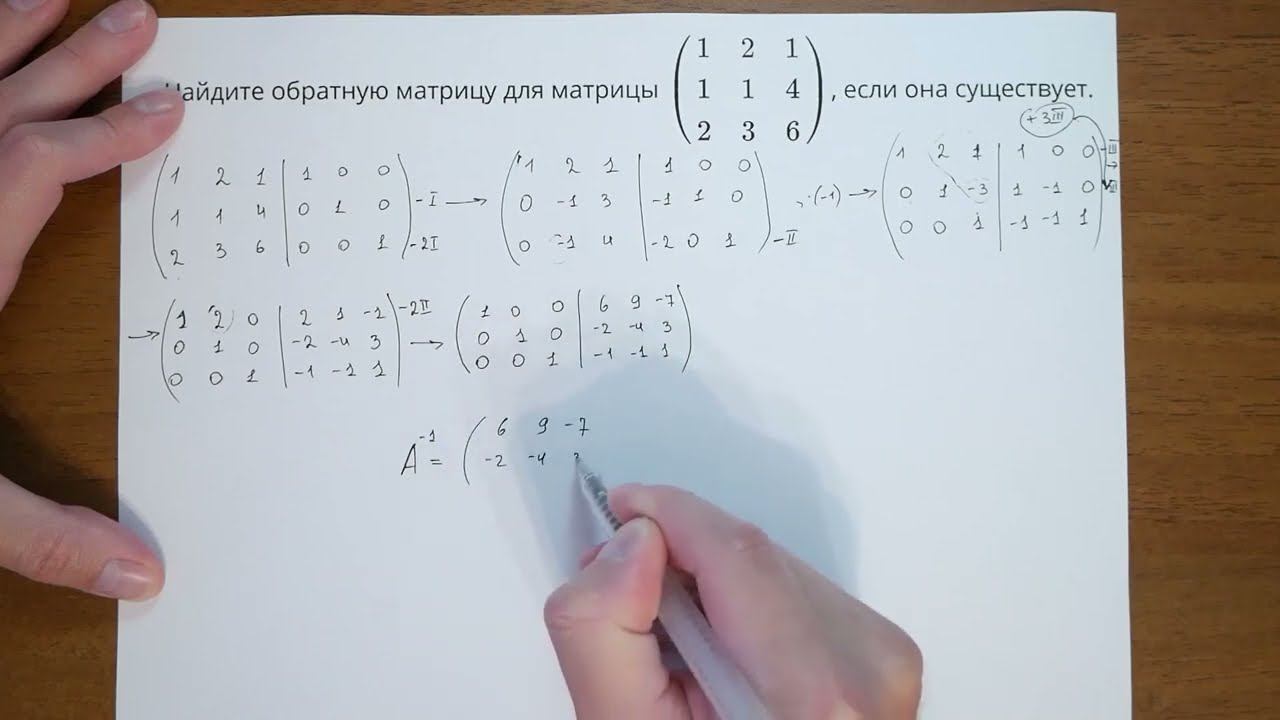 Найдите обратную матрицу для матрицы (1 2 1 , если она существует.
1 1 4
2 3 6)
+ 3III
(1 2 1 | 1 0 0
1 1 4 | 0 1 0
2 3 6 | 0 0 1) -I -2I →
(1 2 1 | 1 0 0
0 -1 3 | -1 1 0
0 -1 4 | -2 0 1) ·(-1) -II →
(1 2 1 | 1 0 0
0 1 -3 | 1 -1 0
0 0 1 | -1 -1 1) -III →
→ (1 2 0 | 2 1 -1
0 1 0 | -2 -4 3
0 0 1 | -1 -1 1) -2II →
(1 0 0 | 6 9 -7
0 1 0 | -2 -4 3
0 0 1 | -1 -1 1)
A⁻¹ = (6 9 -7
-2 -4